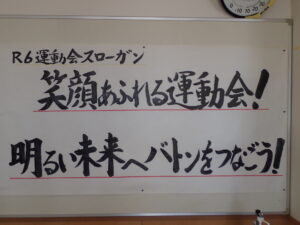 R6運動会スローガン
笑顔あふれる運動会!
明るい未来へバトンをつなごう!